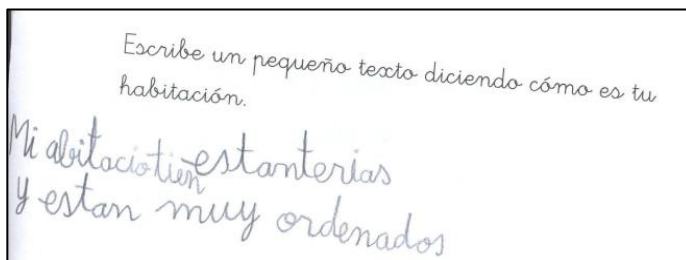 Escribe un pequeño texto diciendo cómo es tu
habitación.
Mi abitacio tien estanterias
y estan muy ordenados